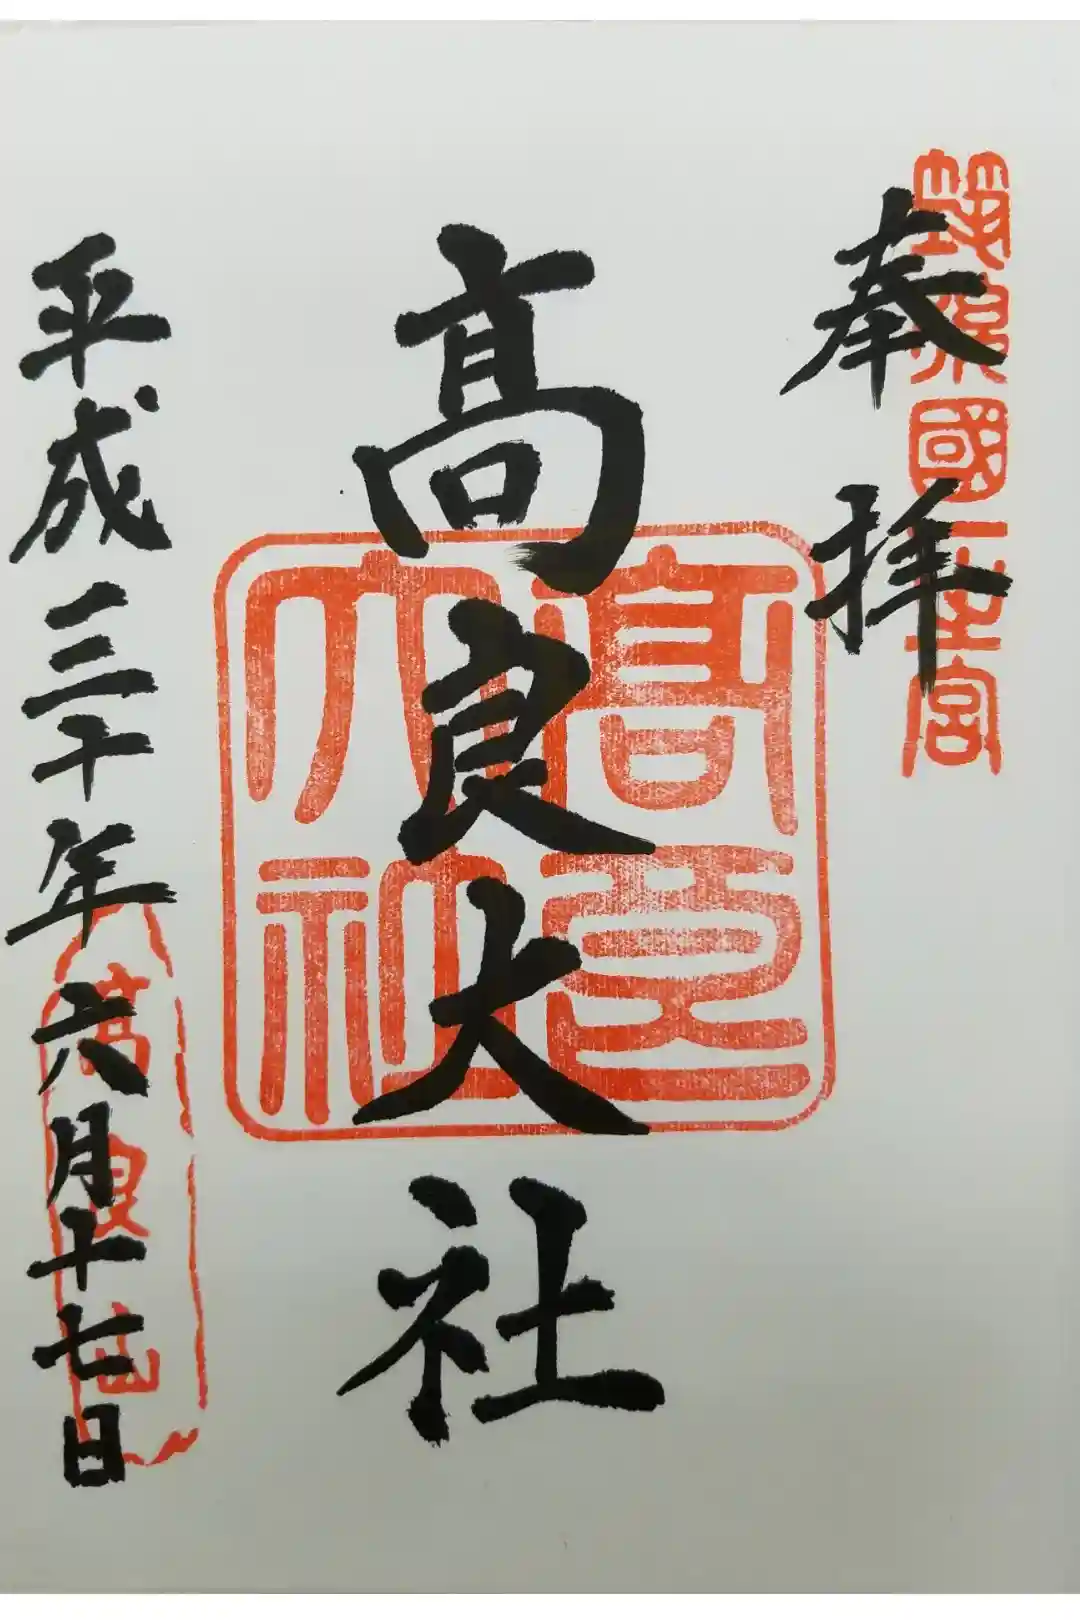 奉拝
筑後國一之宮
髙良大社
高良大社
平成三十年六月十七日
高良山